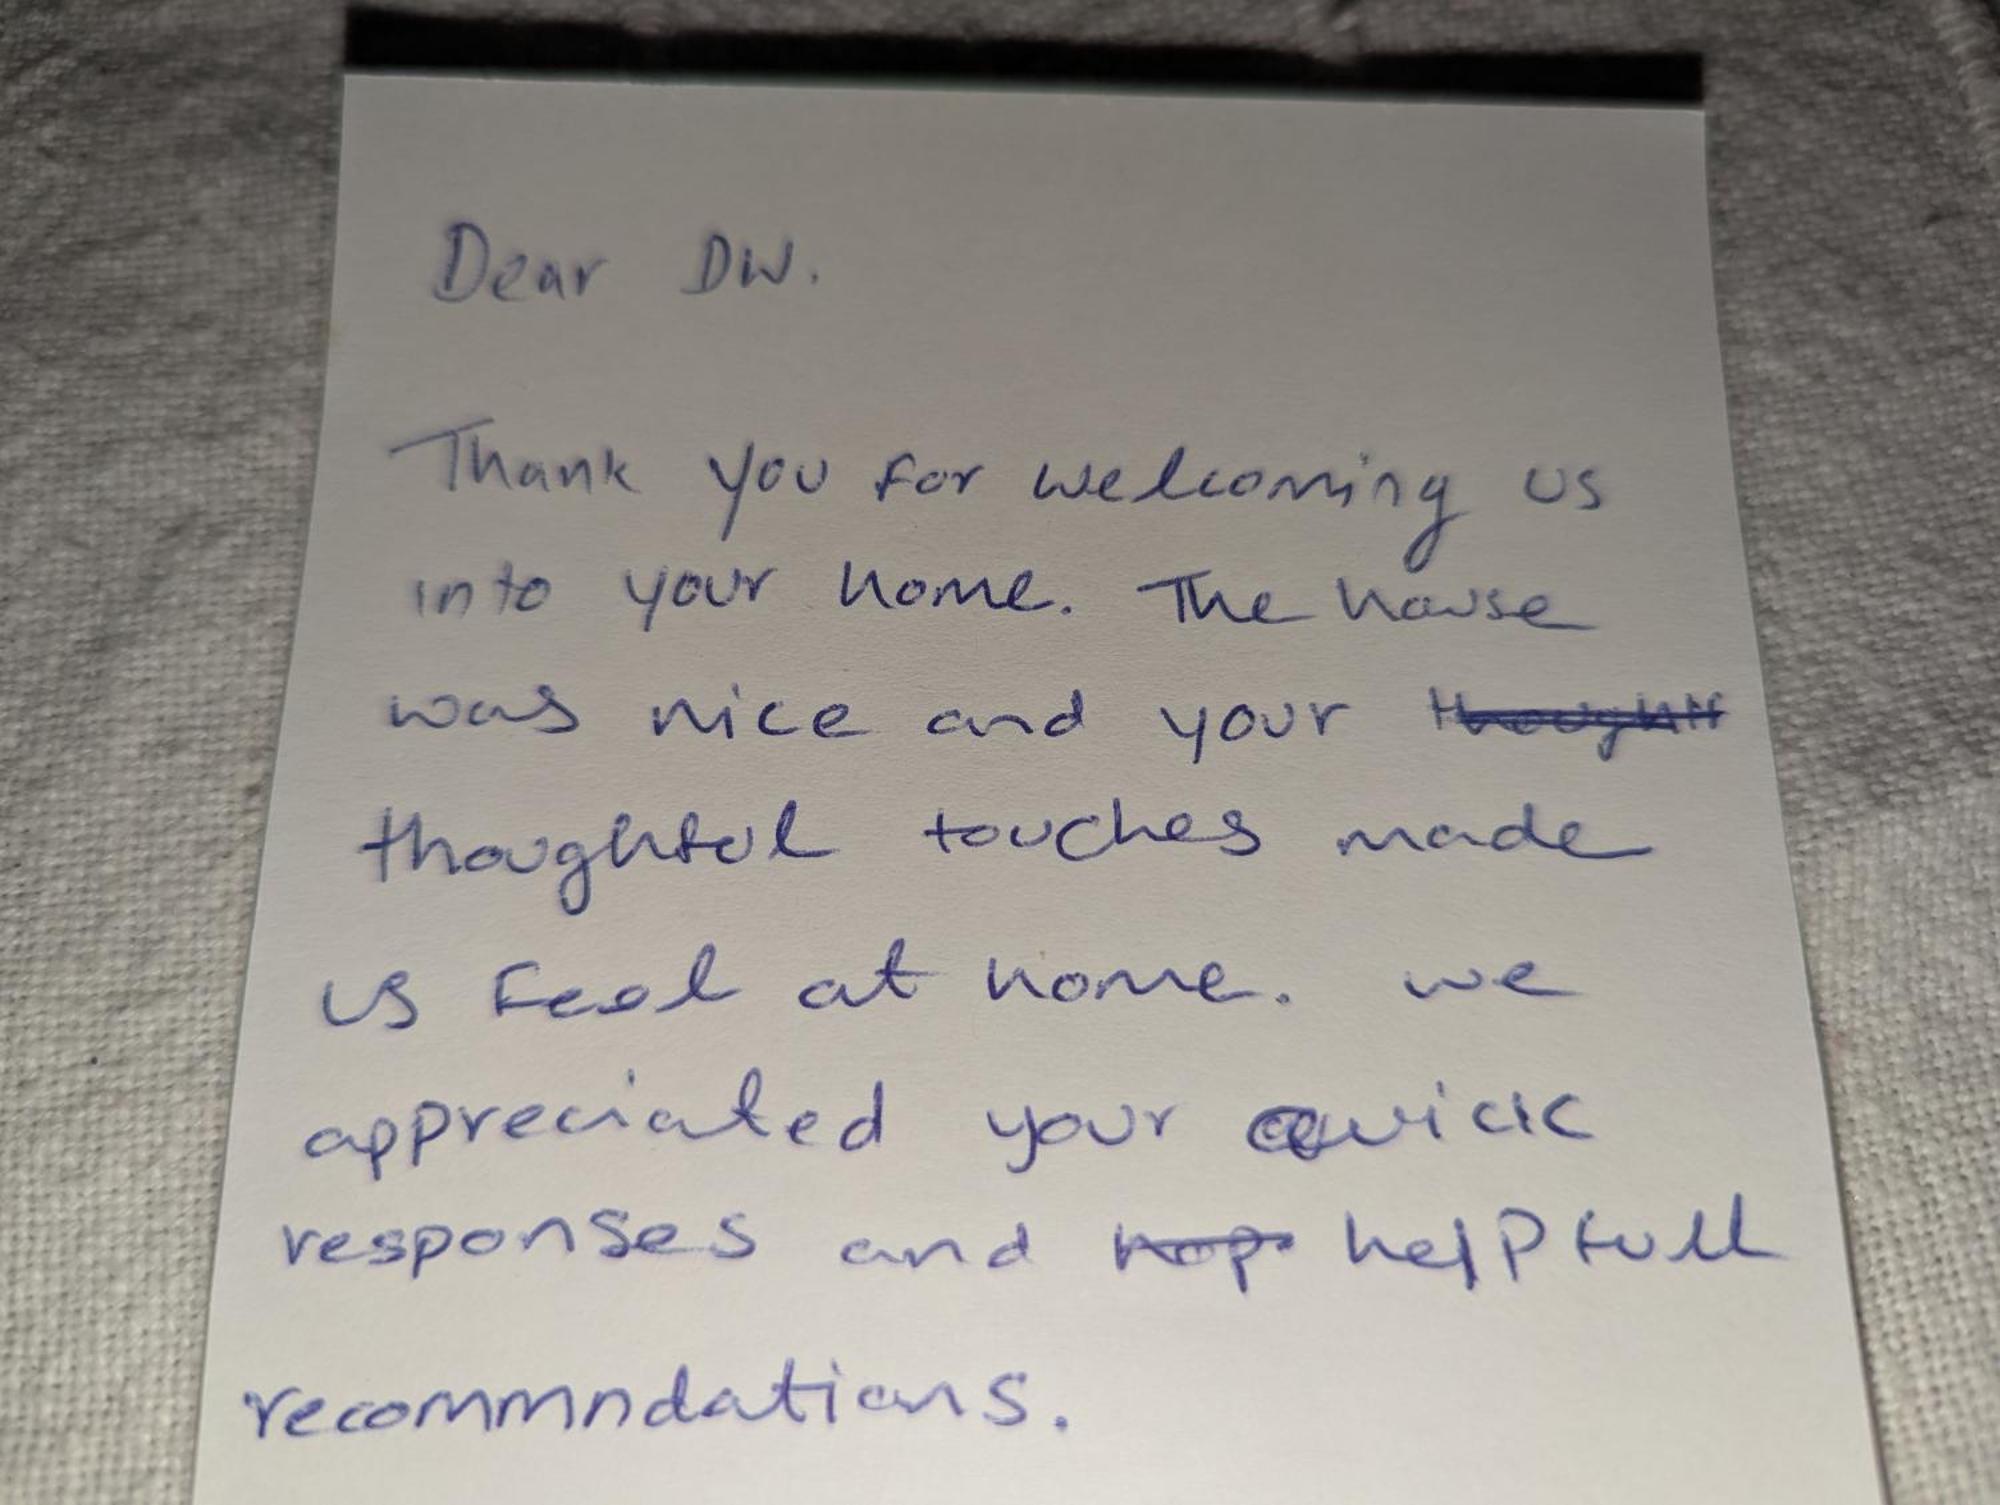 Dear DW.
Thank you for welcoming us
into your home. The house
was nice and your
thoughtful touches made
us feel at home. we
appreciated your quick
responses and helpfull
recommndations.